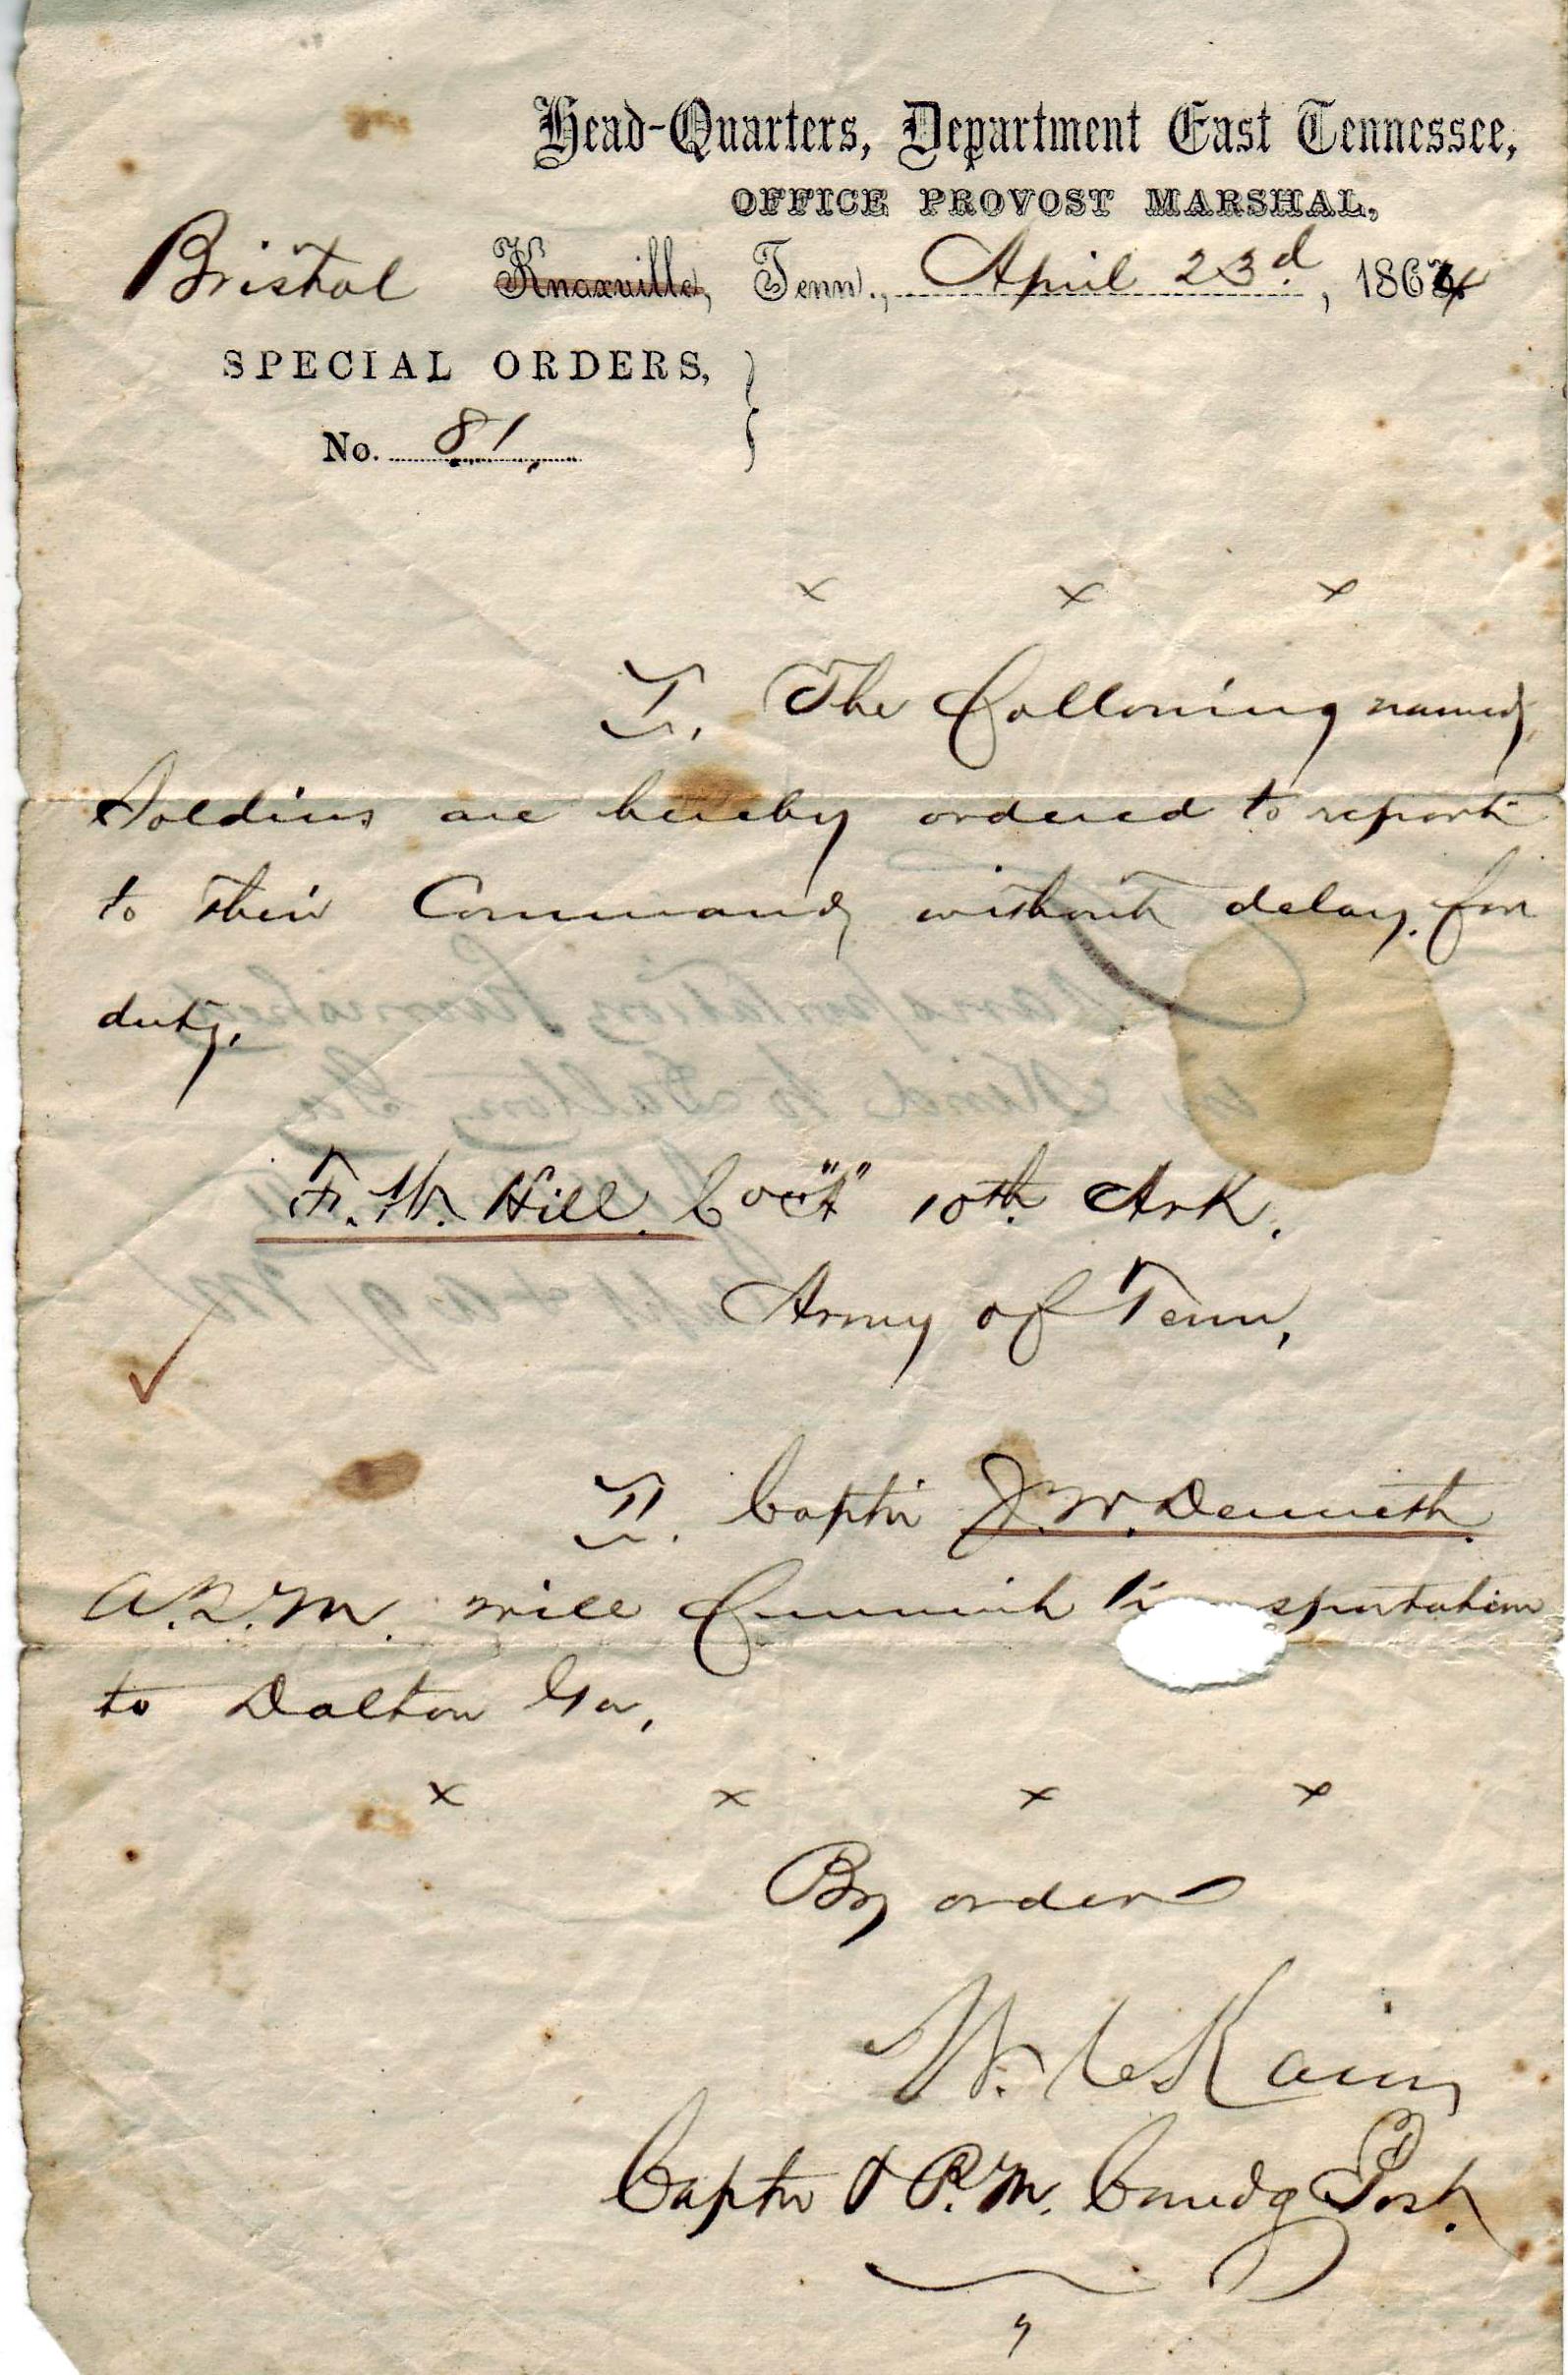 Head-Quarters, Department East Tennessee,
OFFICE PROVOST MARSHAL,
Bristol Knoxville, Tenn., April 23d, 1864
SPECIAL ORDERS,
No. 81.
x x x
I. The following named
Soldiers are hereby ordered to report
to their Command without delay for
duty.
F. W. Hill. Co "A" 10th Ark.
Army of Tenn,
II. Captn J. W. Denneth.
A.Q.M. will furnish sportation
to Dalton Ga,
x x x x
By order
W. Kain
Captn & P.M. Comdg Post.